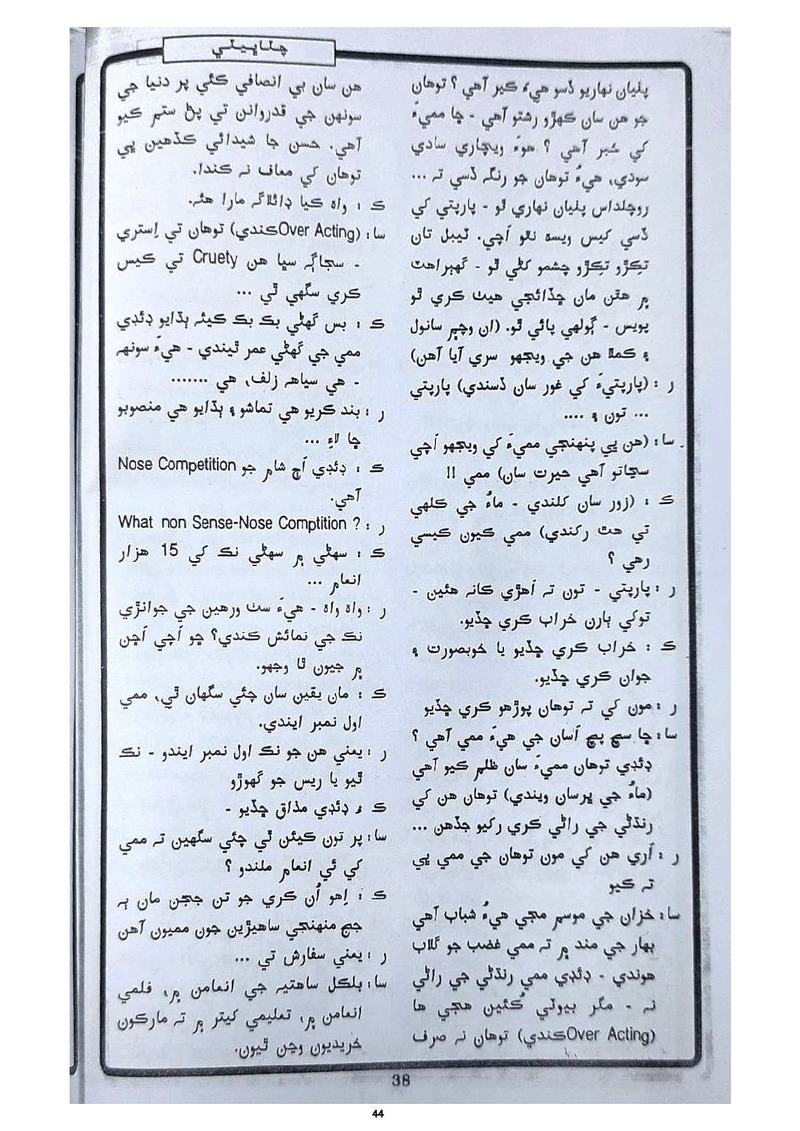 چتاپيٽي
پٺيان نهاريو ڏسو هيءَ ڪير آهي ؟ توهان
جو هن سان ڪهڙو رشتو آهي - ڇا مميءَ
کي خبر آهي ؟ هوءَ ويچاري سادي
سودي، هيءَ توهان جو رنگ ڏسي ته ...
روچلداس پٺيان نهاري ٿو - پارپتي کي
ڏسي کيس ويسه نٿو اَچي. ٽيبل تان
تڪڙو تڪڙو چشمو کڻي ٿو - گهٻراهٽ
۾ هٿن مان ڇڏائجي هيٺ ڪري ٿو
پويس - ڳولهي پائي ٿو. (ان وچ۾ سانول
۽ ڪملا هن جي ويجهو سري آيا آهن)
ر : (پارپتيءَ کي غور سان ڏسندي) پارپتي
... تون ۽ ....
سا: (هن ڀي پنهنجي مميءَ کي ويجهو اَچي
سڃاتو آهي حيرت سان) ممي !!
ڪ : (زور سان کلندي - ماءُ جي ڪلهي
تي هٿ رکندي) ممي ڪيون ڪيسي
رهي ؟
ر : پارپتي - تون ته اَهڙي ڪانه هئين -
توکي ٻارن خراب ڪري ڇڏيو.
ڪ : خراب ڪري ڇڏيو يا خوبصورت ۽
جوان ڪري ڇڏيو.
ر : مون کي ته توهان پوڙهو ڪري ڇڏيو
سا: ڇا سچ پچ اَسان جي هيءَ ممي آهي ؟
ڊئڊي توهان مميءَ سان ظلم ڪيو آهي
(ماءُ جي ڀرسان ويندي) توهان هن کي
رنڌڻي جي راڻي ڪري رکيو جڏهن ...
ر : اَري هن کي مون توهان جي ممي ڀي
ته ڪيو
سا: خزان جي موسم مڃي هيءُ شباب آهي
بهار جي مند ۾ ته ممي غضب جو گلاب
هوندي - ڊئڊي ممي رنڌڻي جي راڻي
نه - مگر بيوٽي ڪُئين هجي ها
(Over Actingڪندي) توهان نه صرف
هن سان بي انصافي ڪئي پر دنيا جي
سونهن جي قدردانن تي پڻ ستم ڪيو
آهي. حسن جا شيدائي ڪڏهين ڀي
توهان کي معاف نه ڪندا.
ڪ : واه ڪيا ڊائلاگ مارا هئه.
سا: (Over Actingڪندي) توهان تي اِستري
- سڃاڳ سڀا هن Cruety تي ڪيس
ڪري سگهي ٿي ...
ڪ : بس گهڻي بڪ بڪ ڪيئه ٻڌايو ڊئڊي
ممي جي گهڻي عمر ٿيندي - هيءَ سونهه
- هي سياهه زلف، هي .......
ر : بند ڪريو هي تماشو ۽ ٻڌايو هي منصوبو
ڇا لاءِ ...
ڪ : ڊئڊي اَڄ شام جو Nose Competition
آهي.
ر : What non Sense-Nose Comptition ?
ڪ : سهڻي ۾ سهڻي نڪ کي 15 هزار
انعام ...
ر : واه واه - هيءَ سٺ ورهين جي جوانڙي
نڪ جي نمائش ڪندي؟ ڇو اَچي اَڇن
۾ جيون ٿا وجهو.
ڪ : مان يقين سان چئي سگهان ٿي، ممي
اول نمبر ايندي.
ر : يعني هن جو نڪ اول نمبر ايندو - نڪ
ٿيو يا ريس جو گهوڙو
ڪ : ڊئڊي مذاق ڇڏيو -
سا: پر تون ڪيئن ٿي چئي سگهين ته ممي
کي ئي انعام ملندو ؟
ڪ : اِهو اُن ڪري جو ٽن ججن مان ٻه
جج منهنجي ساهيڙين جون مميون آهن
ر : يعني سفارش تي ...
سا: بلڪل ساهتيه جي انعامن ۾، فلمي
انعامن ۾، تعليمي کيتر ۾ ته مارڪون
خريديون وڃن ٿيون.
38
44